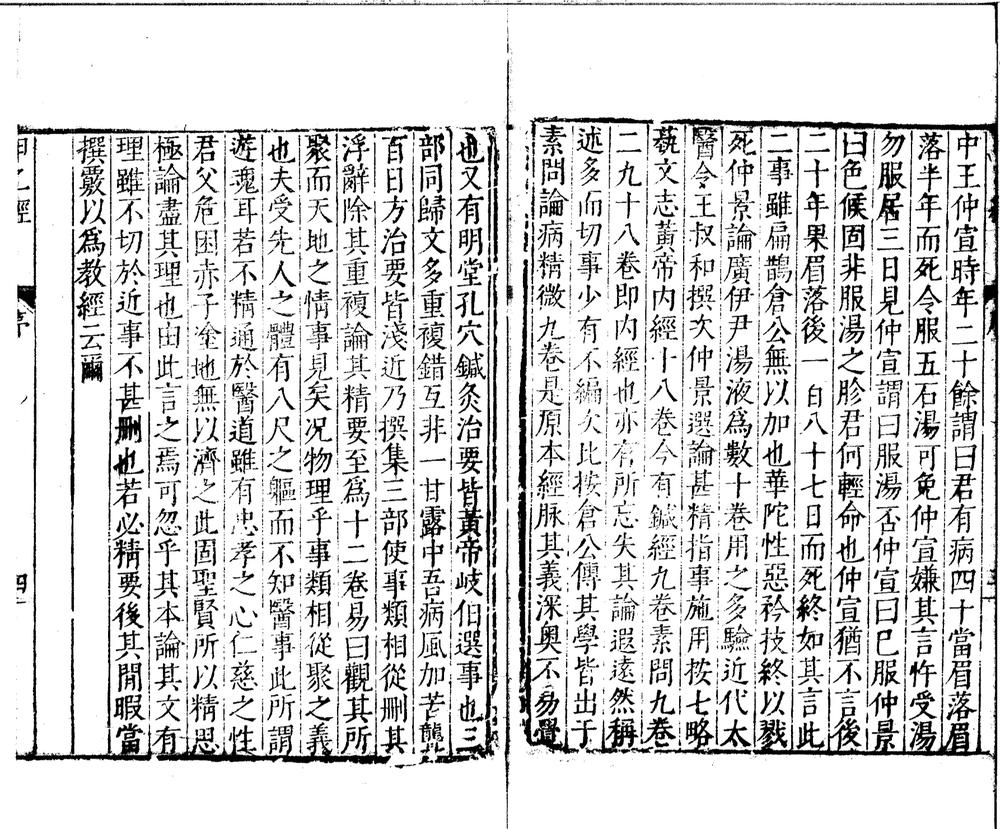 中王仲宣時年二十餘謂曰君有病四十當眉落眉
落半年而死令服五石湯可免仲宣嫌其言忤受湯
勿服居三日見仲宣謂曰服湯否仲宣曰已服仲景
曰色候固非服湯之胗君何輕命也仲宣猶不言後
二十年果眉落後一百八十七日而死終如其言此
二事雖扁鵲倉公無以加也華陀性惡矜技終以戮
死仲景論廣伊尹湯液爲數十卷用之多驗近代太
醫令王叔和撰次仲景選論甚精指事施用按七略
蓺文志黃帝内經十八卷今有鍼經九卷素問九卷
二九十八卷即内經也亦有所忘失其論遐遠然稱
述多而切事少有不編次比按倉公傳其學皆出于
素問論病精微九卷是原本經脉其義深奥不易覺
也又有明堂孔穴鍼灸治要皆黃帝岐伯選事也三
部同歸文多重複錯互非一甘露中吾病風加苦聾
百日方治要皆淺近乃撰集三部使事類相從刪其
浮辭除其重複論其精要至爲十二卷易曰觀其所
聚而天地之情事見矣况物理乎事類相從聚之義
也夫受先人之體有八尺之軀而不知醫事此所謂
遊魂耳若不精通於醫道雖有忠孝之心仁慈之性
君父危困赤子塗地無以濟之此固聖賢所以精思
極論盡其理也由此言之焉可忽乎其本論其文有
理雖不切於近事不甚刪也若必精要後其閒暇當
撰覈以爲教經云爾
甲乙經
序
四